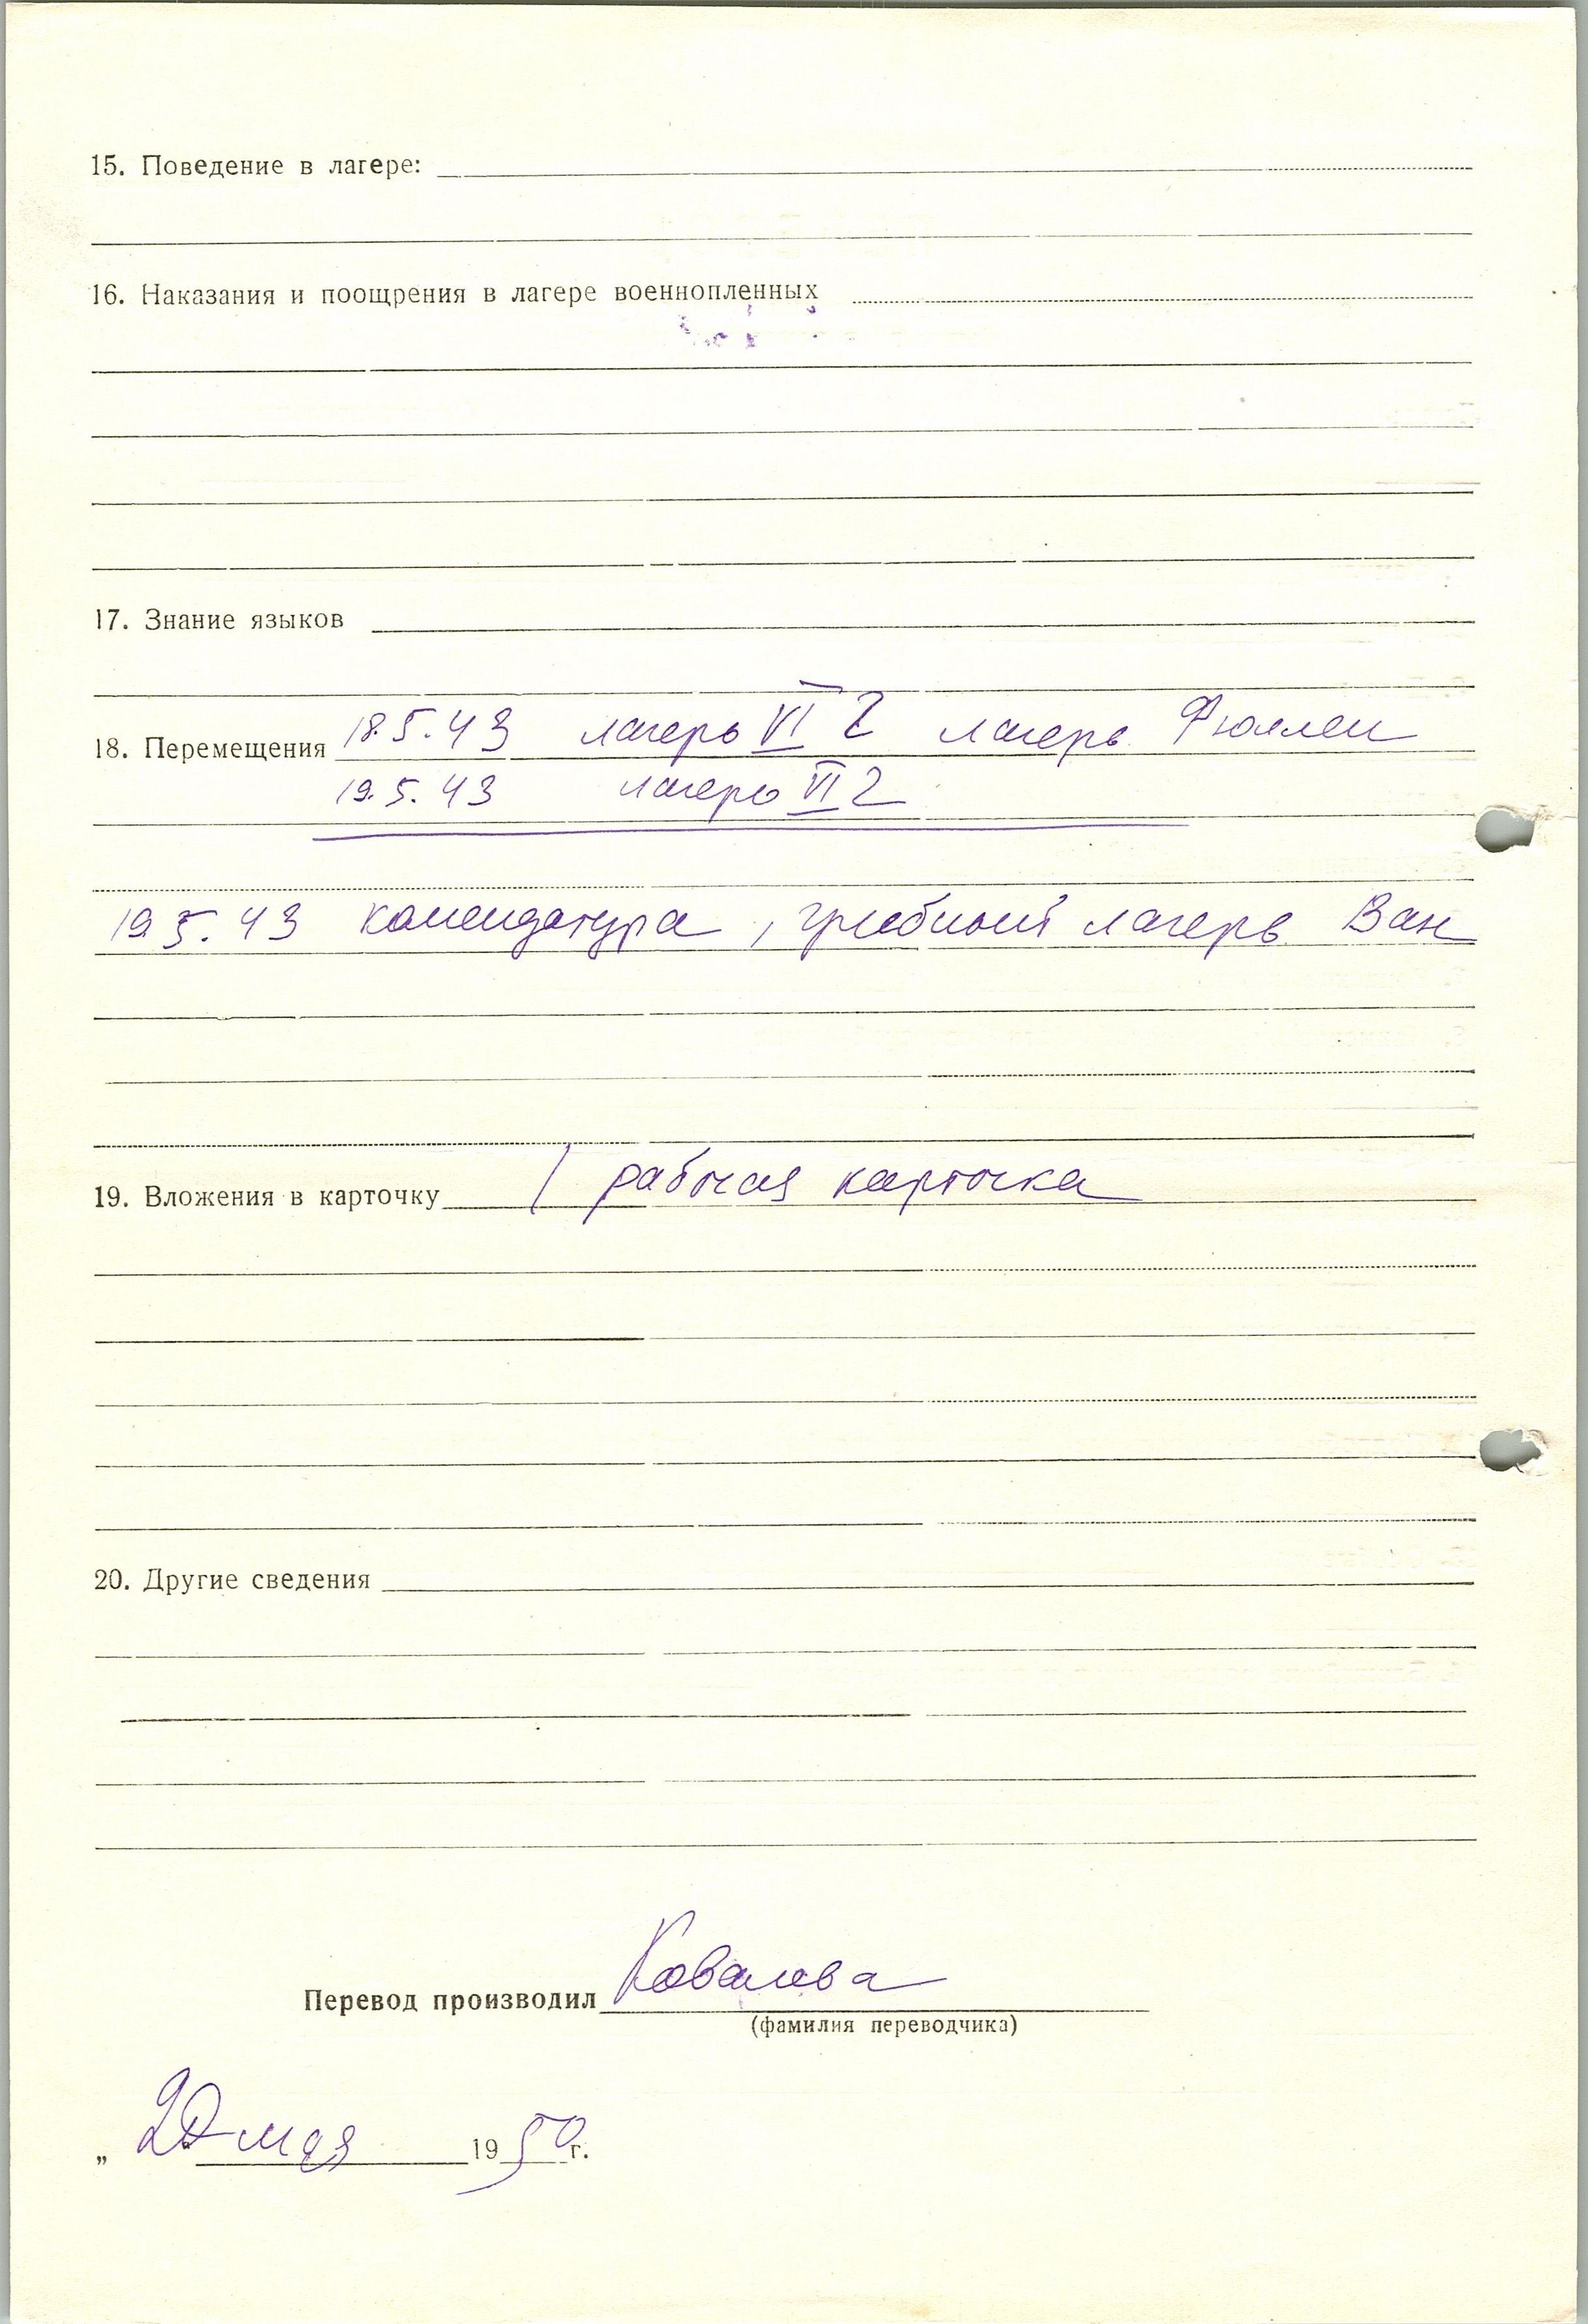 15. Поведение в лагере:
16. Наказания и поощрения в лагере военнопленных
17. Знание языков
18. Перемещения 18.5.43 лагерь VI 2 лагерь Фюллен
19.5.43 лагерь VI 2
19 5. 43 комендатура, лагерь Ван
19. Вложения в карточку рабочая карточка
20. Другие сведения
Перевод производил Ковалева
(фамилия переводчика)
„ 20 мая 1950 г.